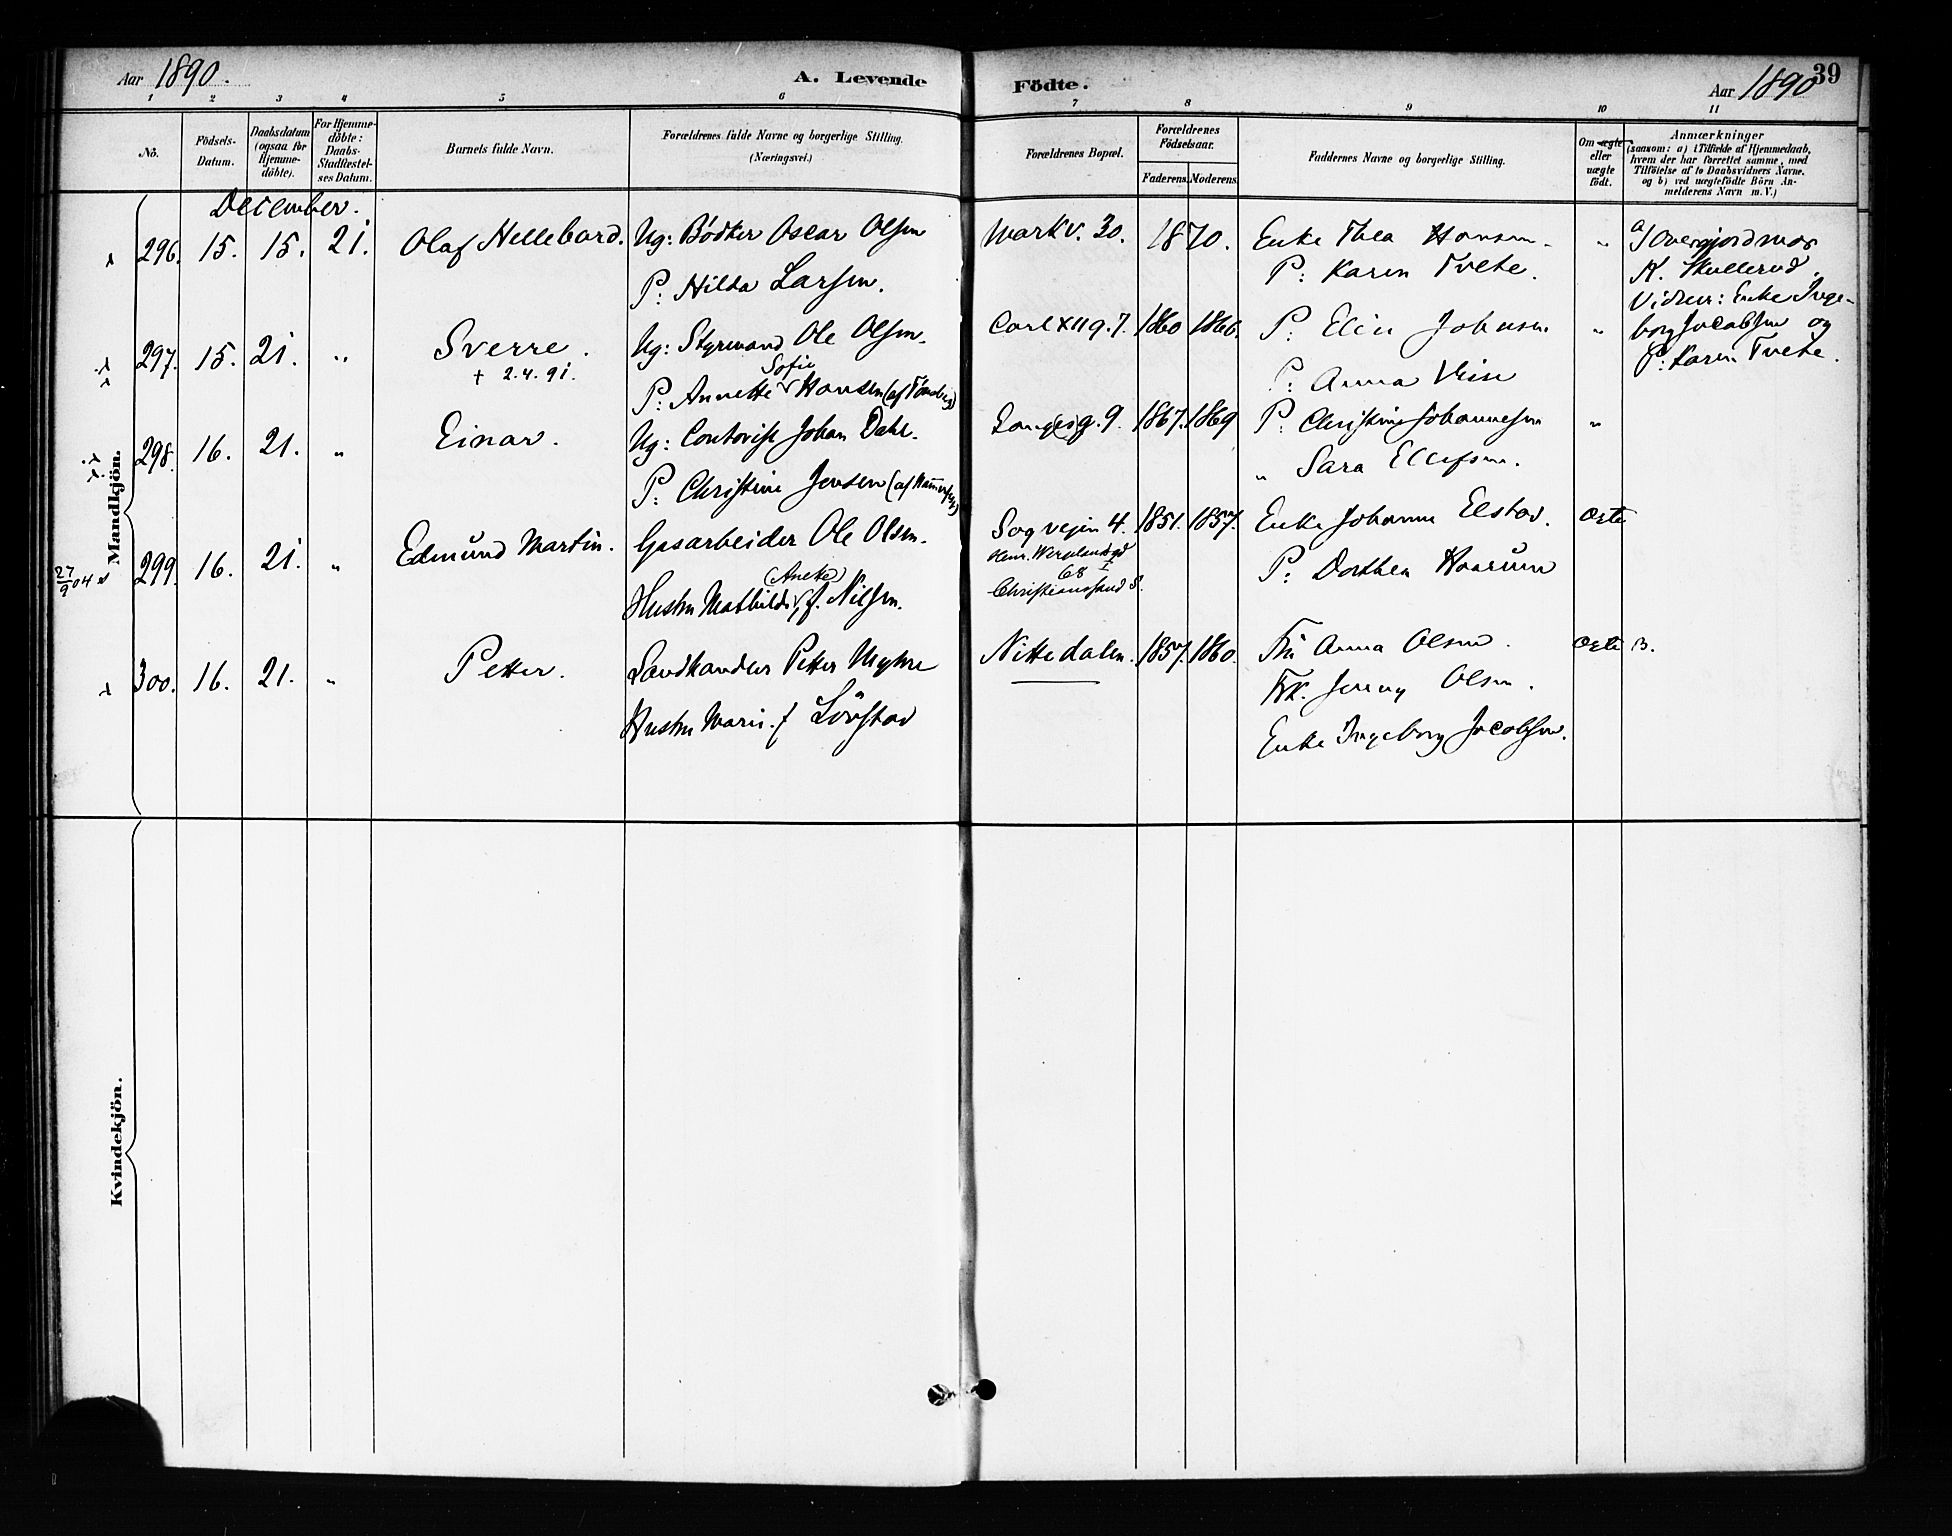 Aar 1890. A. Levende Födte. Aar 1890 39
1 2 3 4 5 6 7 8 9 10 11
No.
Födsels-Datum.
Daabsdatum (ogsaa for Hjemme-döbte).
For Hjemme-döbte: Daabs-Stadfæstel-ses Datum.
Barnets fulde Navn.
Forældrenes fulde Navne og borgerlige Stilling. (Næringsvei.)
Forældrenes Bopæl.
Forældrenes Födselsaar.
Faderens. Moderens.
Faddernes Navne og borgerlige Stilling.
Om ægte eller uægte födt.
Anmærkninger
(saasom: a) i Tilfælde af Hjemmedaab, hvem der har forrettet samme, med Tilföielse af to Daabsvidners Navne, og b) ved uægtefödte Börn An-melderens Navn m. V.)
Mandkjön.
December.
296. 15. 15. 21. Olaf Hellebard. Ug: Bödker Oscar Olsen Markv. 30. 1870. Enke Thea Hansen. „ a/ Overgjordmor
P: Hilda Larsen. P: Karen Tvete. K. Skullerud.
Vidner: Enke Inge-
297. 15. 21. „ Sverre. Ug: Styrmand Ole Olsen. Carl XII g. 7. 1860 1866. P: Elin Johnsen „ borg Jacobsen og
+ 2.4.91. Sofie P: Karen Tvete.
P: Annette Hansen (af Tönsberg) P: Anna
298. 16. 21. „ Einar. Ug: Contorist Johan Dahl. 9. 1867. 1869 P: Christine Johannesen „
P: Christine Jensen (af Hammerfest) „ Sara Ellefsen.
299. 16. 21. „ Edmund Martin. Gasarbeider Ole Olsen. Sogvejen 4. 1851. 1857. Enke Johanne Elstad. ægte
27/9 04 Henr. Wergelandsgd
(Aneke) 68 I P: Dorthea Haarum
Hustru Mathilde f. Nilsen. Christianssand S.
300. 16. 21. „ Petter. Landhandler Petter Myhre Nittedalen. 1857. 1860. Fru Anna Olsen. ægte B.
Frk. Jenny Olsen.
Hustru Marie f Lövstad
Enke Ingeborg Jacobsen.
Kvindekjön.